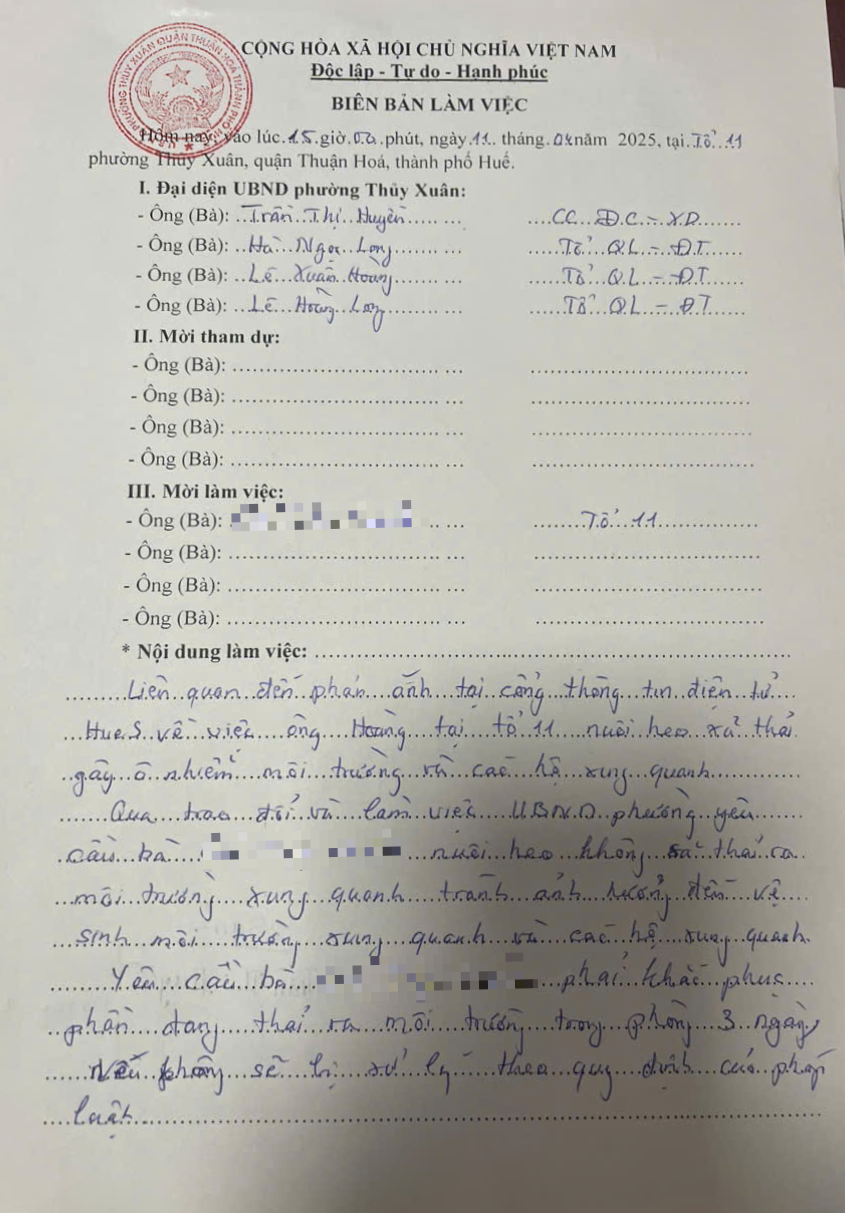 CỘNG HÒA XÃ HỘI CHỦ NGHĨA VIỆT NAM
Độc lập - Tự do - Hạnh phúc
BIÊN BẢN LÀM VIỆC
Hôm nay, vào lúc 15 giờ 00 phút, ngày 11 tháng 04 năm 2025, tại Tổ 11
phường Thủy Xuân, quận Thuận Hoá, thành phố Huế.
I. Đại diện UBND phường Thủy Xuân:
- Ông (Bà): Trần Thị Huyền CC ĐC - XD
- Ông (Bà): Hà Ngọc Long Tổ QL - ĐT
- Ông (Bà): Lê Xuân Hoàng Tổ QL - ĐT
- Ông (Bà): Lê Hoàng Long Tổ QL - ĐT
II. Mời tham dự:
- Ông (Bà):
- Ông (Bà):
- Ông (Bà):
- Ông (Bà):
III. Mời làm việc:
- Ông (Bà): Tổ 11
- Ông (Bà):
- Ông (Bà):
- Ông (Bà):
* Nội dung làm việc:
Liên quan đến phản ánh tại cổng thông tin điện tử
HueS về việc ông Hoàng tại tổ 11 nuôi heo xả thải
gây ô nhiễm môi trường và các hộ xung quanh
Qua trao đổi và làm việc UBND phường yêu
cầu bà nuôi heo không xả thải ra
môi trường xung quanh tránh ảnh hưởng đến vệ
sinh môi trường xung quanh và các hộ xung quanh.
Yêu cầu bà phải khắc phục
phần đang thải ra môi trường trong phòng 3 ngày
Nếu không sẽ bị xử lý theo quy định của pháp
luật